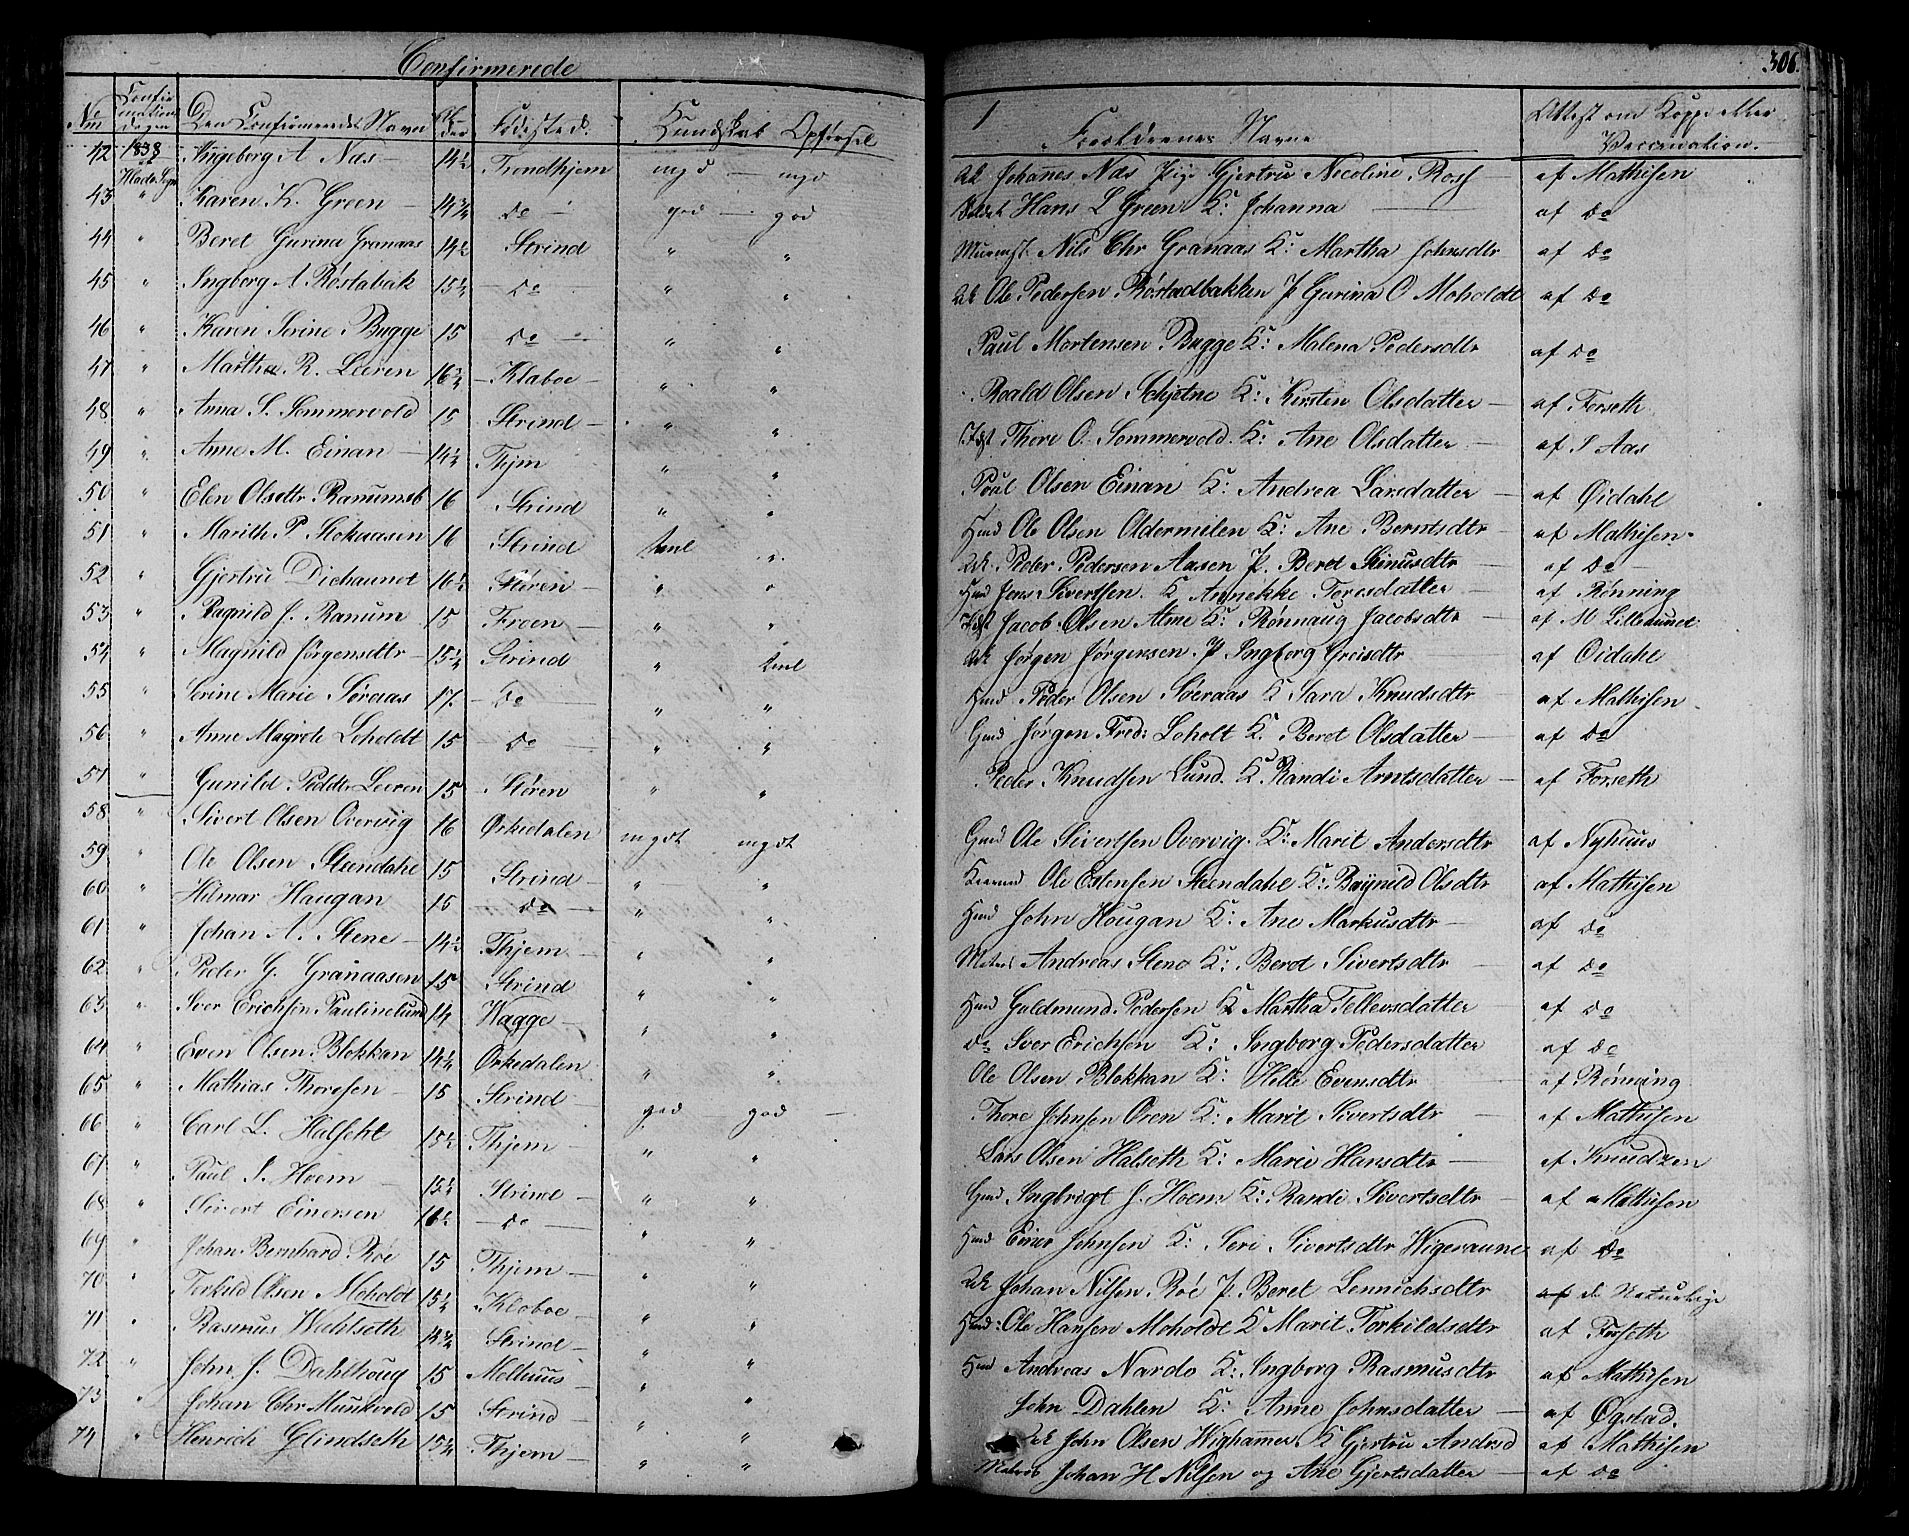 Confirmerede
306.
No Confirmations dagen Den Confirmeredes Navn Alder Fødested. Kundskab Opførsel Forældrenes Navne Attest om Kopper eller Vaccination.
42 1838 Hlade Sogn Ingeborg A Næs 14½ Trondhjem mgd — mgd Johannes Næs Pige Gjertru Nicoline Ross — af Mathisen
43 " Karen K. Green — 14¾ Do god — god Hans L Green K: Johanna — af Do
44 " Beret Gurina Granaas 14½ Strind " " Nils Chr Granaas K: Martha Johnsdtr af Do
45 " Ingborg A. Røstabak 15½ Do " " Ole Pedersen Røstadbakken P Gurina O Moholdt af Do
46 " Karen Serine Bugge 15 Do " " Paul Mortensen Bugge K: Malena Pedersdtr af Do
47 " Martha R. Leeren 16¾ Klæboe — " " Roald Olsen Schjetne K: Kirsten Olsdatter — af Forseth
48 " Anna S. Sommervold 15 Strind — " " Thore O. Sommervold. K: Ane Olsdatter — af P Aas
49 " Anne M. Einan — 14½ Thjm " " Poul Olsen Einan K: Andrea Larsdatter — af Øidahl
50 " Elen Olsdtr Ranumsb 16 Strind " " Hmd Ole Olsen Oldermelen K: Ane Berntsdtr af Mathisen
51 " Marith P Stokaasen 16 Strind tml " Peder Pedersen Aasen P. Beret Stinusdtr — af Do
52 " Gjertru Dichaunet 16½ Støren " " Hmd Jens Sivertsen K Annekke Toresdatter — af Rønning
53 " Ragnild J. Ranum 15 Froen — " " Jacob Olsen Alme K: Rønnaug Jacobsdtr — af M Lillesund
54 " Magnild Jørgensdtr 15¼ Strind " tml Jørgen Jørgensen P Ingborg Greisdtr — af Oidahl
55 " Serine Marie Soraas 17 Do " " Hmd Peder Olsen Soeraas K Sara Knudsdtr af Mathisen
56 " Anne Magrete Loholdt 15 Do " " Gmd Jørgen Fred: Loholt K. Beret Olsdatter — af Do
57 " Gunild Peddtr Leeren 15 Støren " " Peder Knudsen Lund. K: Randi Arntsdatter — af Forseth
58 " Sivert Olsen Overvig 16 Ørkedalen mgdt mgdt Gmd Ole Sivertsen Overvig. K: Marit Andersdtr af Nyhuus
59 " Ole Olsen Steendahl 15 Strind — " " Ole Estensen Steendahl K: Ragnild Olsdtr af Mathisen
60 " Hilmar Haugan 15 Do " " Hmd John Hougan K: Ane Markusdtr — af Do
61 " Johan A. Stene — 14½ Thjem — " " Andreas Stene K: Beret Sivertsdtr af Do
62 " Peder G. Granaasen 15 Strind " " Hmd Guldmund Pedersen K Martha Tellevsdatter — af Do
63 " Iver Erichsen Paulinelund 14 Vagge — " " Do Iver Erichsen K: Ingborg Pedersdatter af Do
64 " Even Olsen Blokkan 14½ Orkedalen " " Ole Olsen Blokkan K: Helle Evensdtr af Rønning
65 " Mathias Thoresen — 15 Strind — god god — Thore Johnsen Oren K: Marit Sivertsdtr af Mathisen
66 " Carl L. Halseht 15½ Thjem — " " Lars Olsen Halseth K: Marie Hansdtr — af Knudzen
67 " Paul I. Hoem — 15½ Strind — " " Gmd Ingbrigt J. Hoem K: Randi Sivertsdtr — af Mathisen
68 " Sivert Einersen 16½ Do " " Hmd Einer Johnsen K: Seri Sivertsdtr Wigeraunet af Do
69 " Johan Bernhard Røe 15 Thjem — " " Johan Nilsen Røe P. Beret Lennichsdtr af do Naturlige
70 " Torkild Olsen Moholdt 15½ Klæboe — " " Hmd: Ole Hansen Moholdt K Marit Torkildsdtr af Forseth
71 " Rasmus Wehlseth 14¾ Strind — " " Hmd Andreas Nardo K: Ingborg Rasmusdtr af Mathisen
72 " John J. Dahlhoug 15 Melhuus " " John Dahlen K: Anne Johnsdatter — af Øgstad.
73 " Johan Chr Munkvold 15 Strind " " John Olsen Wighammer K Gjertru Andrsd af Mathisen
74 " Henrich Glindseth 15¼ Thjem — " " Johan H Nilsen og Ane Gjertsdatter — af Do